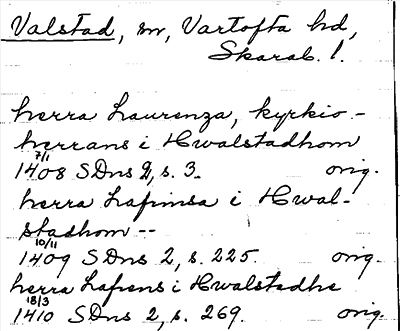 Valstad, sn, Vartofta hd,
Skarab. l.
herra Laurenza, kyrkio-
herrans i Hwalstadhom
7/1
1408 SDns 2, s. 3. orig.
herra Lafrinsa i Hwal-
stadhom --
10/11
1409 SDns 2, s. 225. orig.
herra Lafrens i Hwalstadhe
18/3
1410 SDns 2, s. 269. orig.